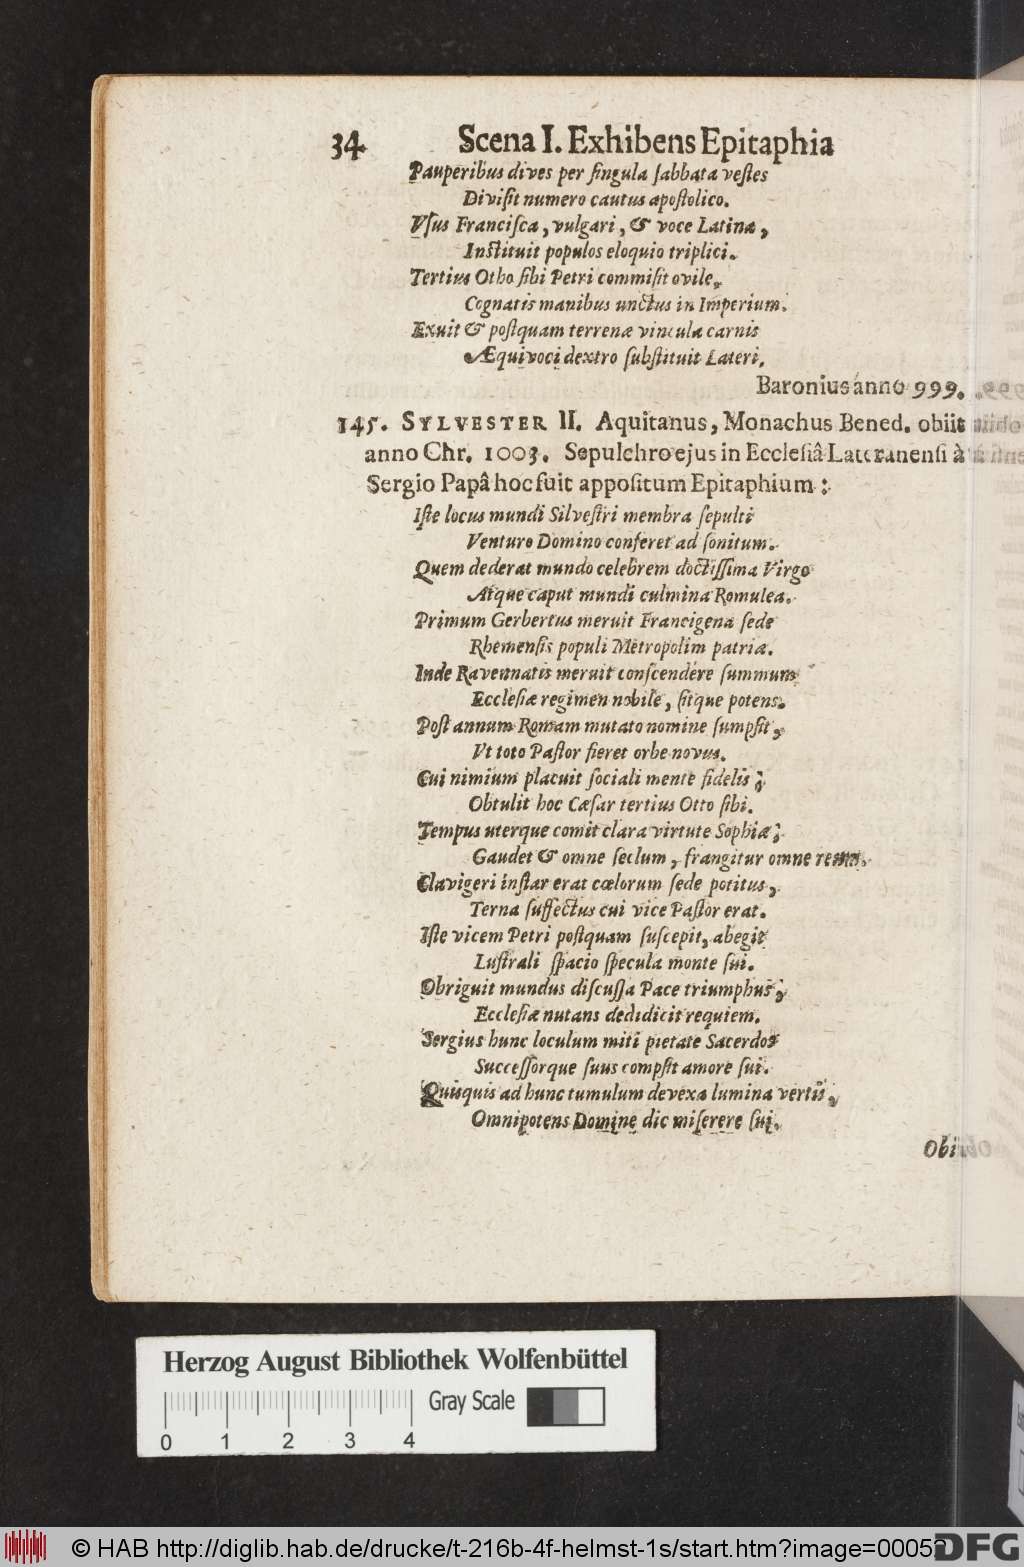 34 Scena I. Exhibens Epitaphia
Pauperibus dives per ſingula ſabbata veſtes
Diviſit numero cautus apoſtolico.
Vſus Franciſca, vulgari, & voce Latina,
Inſtituit populos eloquio triplici.
Tertius Otho ſibi Petri commiſit ovile,
Cognatis manibus unctus in Imperium.
Exuit & poſtquam terrenæ vincula carnis
Æquivoci dextro ſubſtituit Lateri.
Baronius anno 999.
145. SYLVESTER II. Aquitanus, Monachus Bened. obiit
anno Chr. 1003. Sepulchro ejus in Eccleſiâ Lateranenſi à
Sergio Papâ hoc fuit appoſitum Epitaphium:
Iſte locus mundi Silveſtri membra ſepulti
Venturo Domino conferet ad ſonitum.
Quem dederat mundo celebrem doctiſſima Virgo
Atque caput mundi culmina Romulea.
Primum Gerbertus meruit Francigena ſede
Rhemenſis populi Metropolim patriæ.
Inde Ravennatis meruit conſcendere ſummum
Eccleſiæ regimen nobile, ſitque potens.
Poſt annum Romam mutato nomine ſumpſit,
Vt toto Paſtor fieret orbe novus.
Cui nimium placuit ſociali mente fidelis;
Obtulit hoc Cæſar tertius Otto ſibi.
Tempus uterque comit clara virtute Sophiæ;
Gaudet & omne ſeclum, frangitur omne
Clavigeri inſtar erat cœlorum ſede potitus,
Terna ſuffectus cui vice Paſtor erat.
Iſte vicem Petri poſtquam ſuſcepit, abegit
Luſtrali ſpacio ſpecula monte ſui.
Obriguit mundus diſcuſſa Pace triumphus;
Eccleſiæ nutans dedidicit requiem.
Sergius hunc loculum miti pietate Sacerdos
Succeſſorque ſuus compſit amore ſui.
Quisquis ad hunc tumulum devexa lumina vertis,
Omnipotens Domine dic miſerere ſui.
Obiit
Herzog August Bibliothek Wolfenbüttel
Gray Scale
0 1 2 3 4
© HAB http://diglib.hab.de/drucke/t-216b-4f-helmst-1s/start.htm?image=00052
DFG